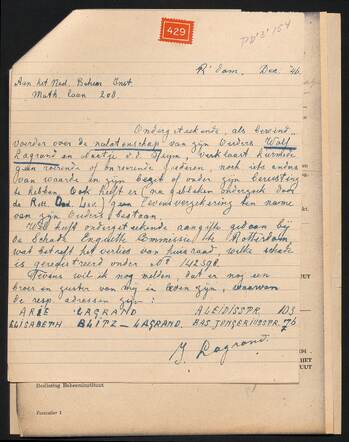 429
R'dam. Dec. '46.
Aan het Ned. Beheer Inst.
Math. laan 20B.
Ondergeteekende, als bewind-
voerder over de nalatenschap van zijn Ouders Wolf
Lagrand en Naatje v. d. Heijm, verklaart hiermede
geen roerende of onroerende goederen, noch iets anders
van waarde in zijn bezit of onder zijn berusting
te hebben. Ook heeft er (na gebleken onderzoek door
de Rott. ) geen levensverzekering ten name
van zijn Ouders bestaan.
Wel heeft ondergeteekende aangifte gedaan bij
de Schade Enquête Commissie te Rotterdam,
wat betreft het verlies van huisraad, welke schade
is geregistreerd onder No 142390.
Tevens wil ik nog melden, dat er nog een
broer en zuster van mij in leven zijn, waarvan
de resp. adressen zijn:
ARIE LAGRAND ALEIDISSTR. 103
ELISABETH BLITZ-LAGRAND. BAS JUNGERIUSSTR. 76
J. Lagrand.
Beslissing Beheersinstituut
Formulier 1